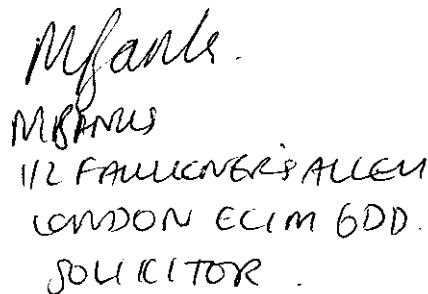 MBanks.
M BANKS
1/2 FAULKNER'S ALLEY
LONDON EC1M 6DD.
SOLICITOR.